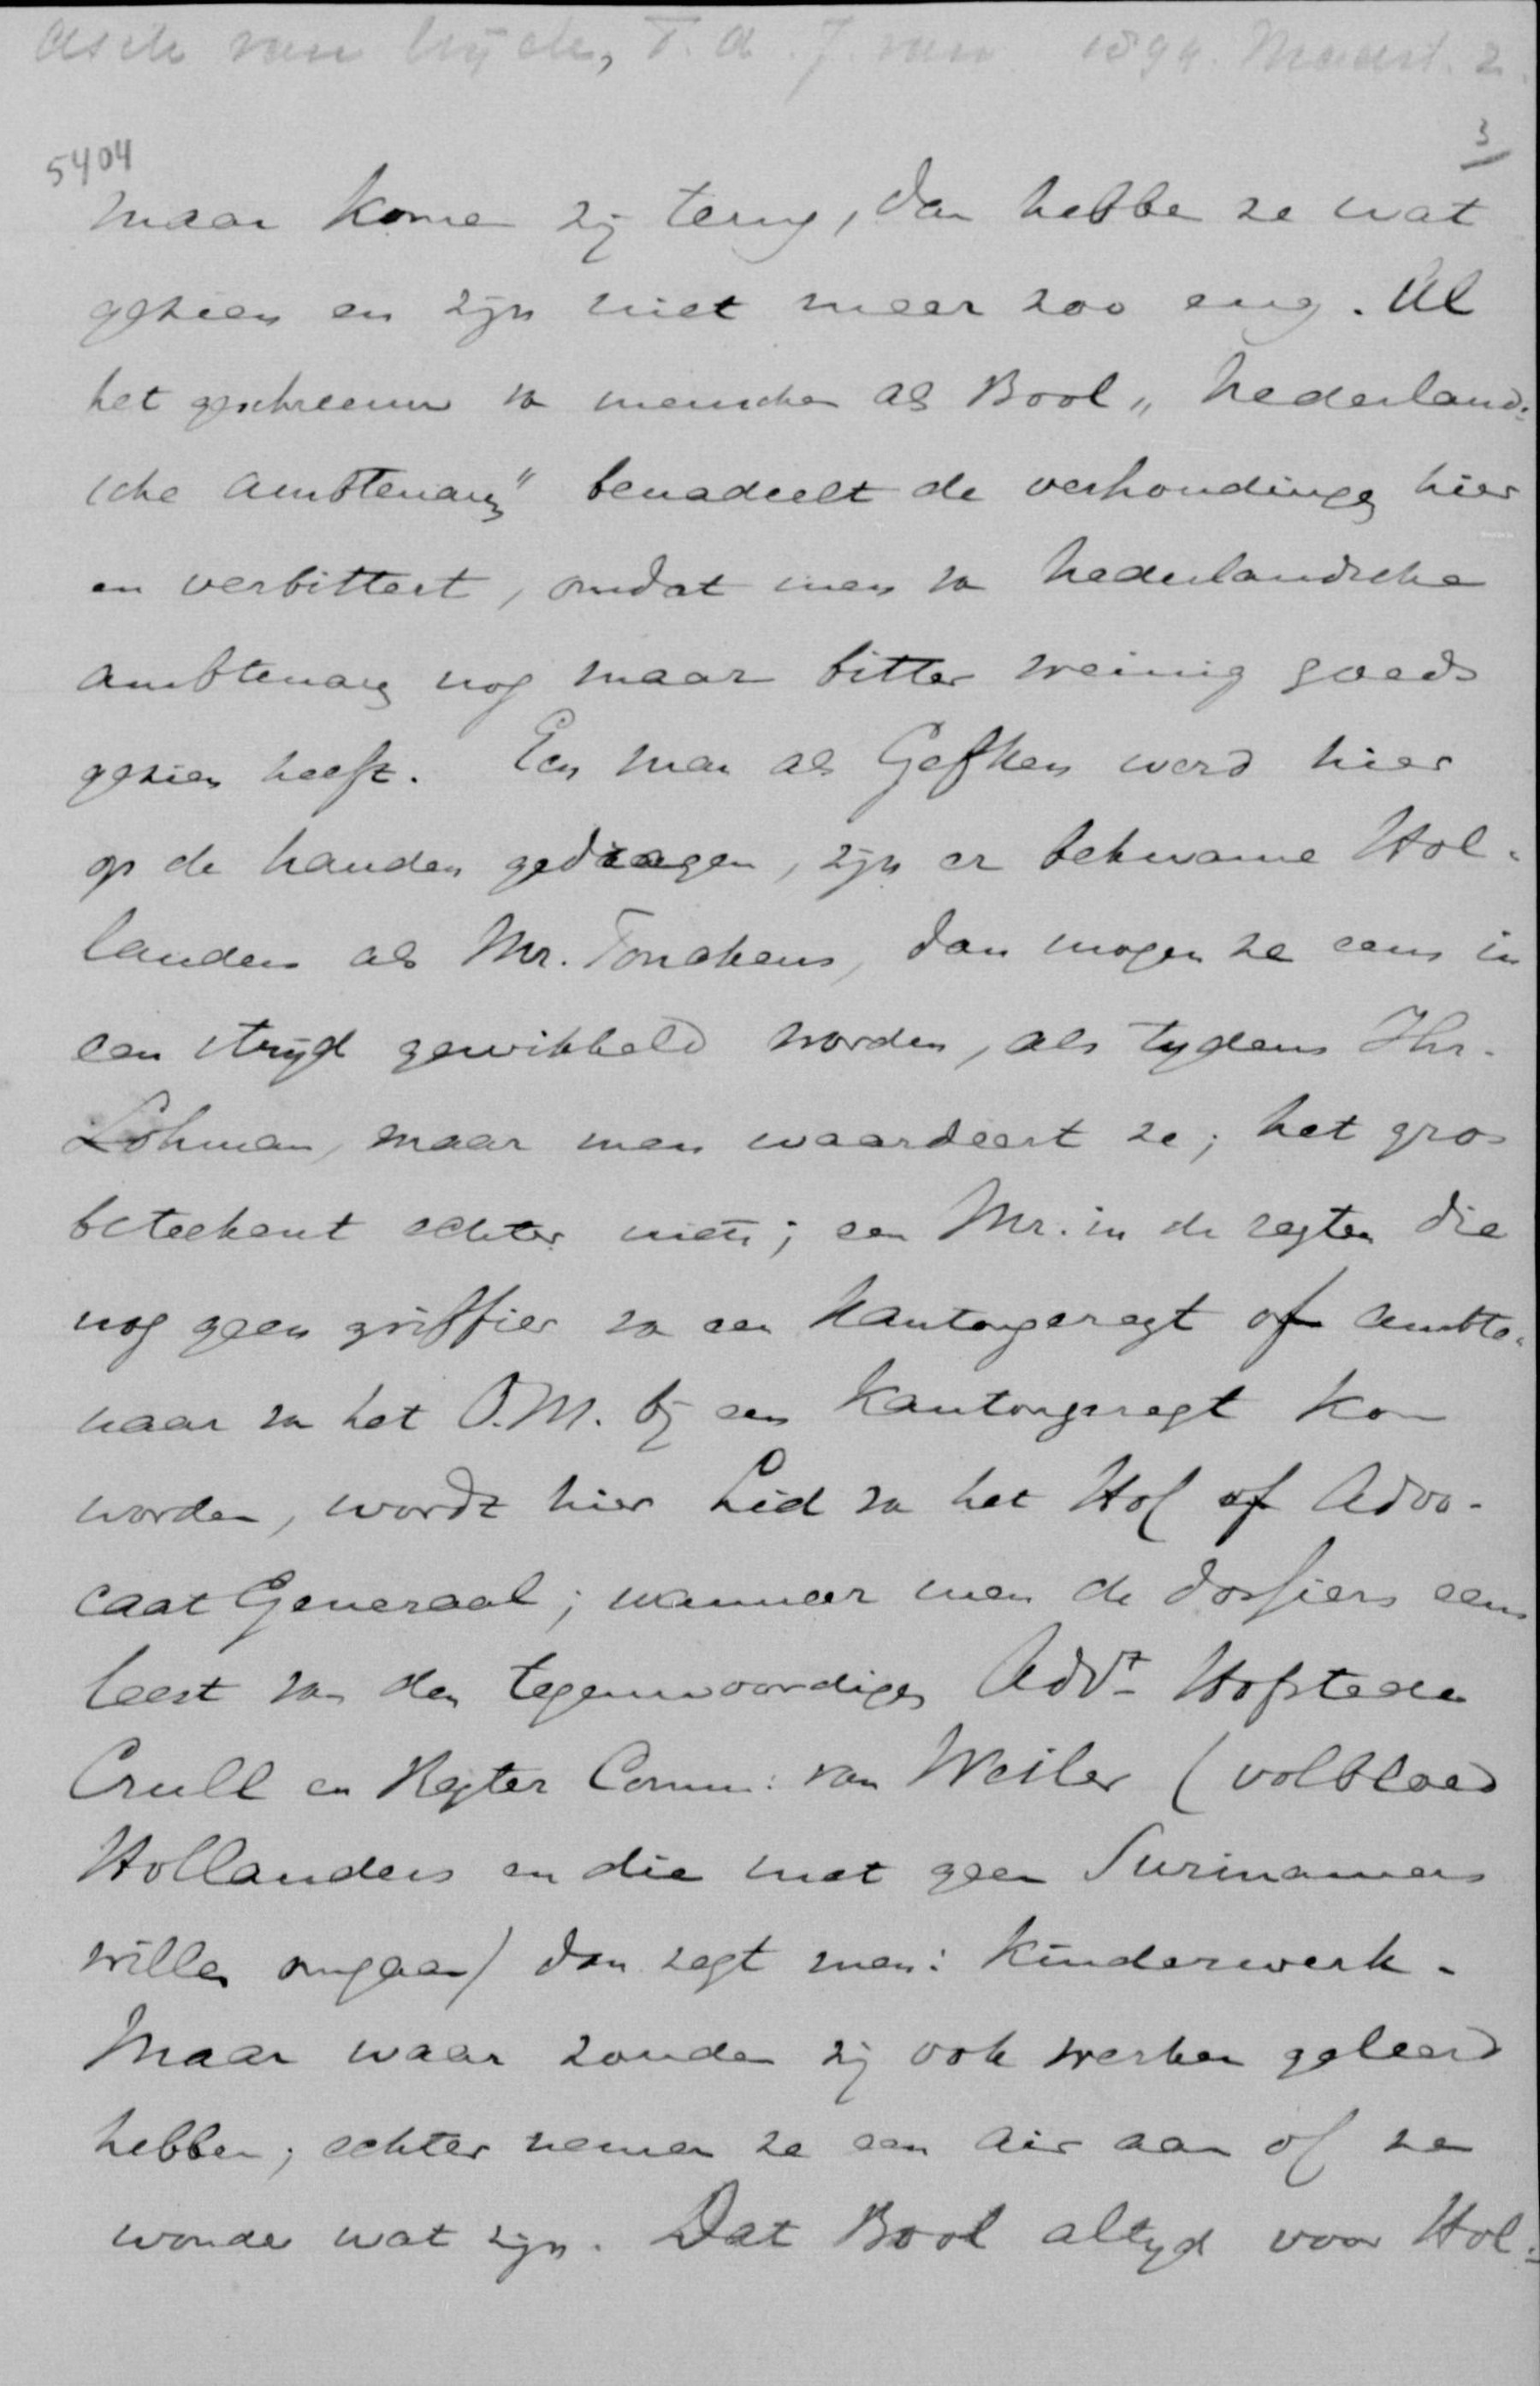 Asch van Wijck, T. A. J. van 1894. Maart. 2.
3
5404
maar komen zij terug, dan hebben ze wat
gezien en zijn niet meer zoo eng. Al
het geschreeuw van menschen als Bool „Nederland=
sche ambtenaren" benadeelt de verhoudingen hier
en verbittert, omdat men van Nederlandsche
ambtenaren nog maar bitter weinig goeds
gezien heeft. Een man als Gefken werd hier
op de handen gedragen, zijn er bekwame Hol-
landers als Mr. Tonckens, dan mogen ze eens in
een strijd gewikkeld worden, als tydens Jhr.
Lohman, maar men waardeert ze; het gros
beteekent echter niets; een Mr. in de regten die
nog geen griffier van een Kantongeregt of ambte-
naar van het O.M. bij een Kantongeregt kon
worden, wordt hier Lid van het Hof of Advo-
caat Generaal; wanneer men de dossiers eens
leest van den tegenwoordigen Advt Hofstede
Crull en Regter Comm: van Weiler (volbloed
Hollanders en die met geen Surinamers
willen omgaan) dan zegt men: Kinderwerk.
Maar waar zouden zij ook werken geleerd
hebben; echter nemen ze een air aan of ze
wonder wat zijn. Dat Bool altyd voor Hol=